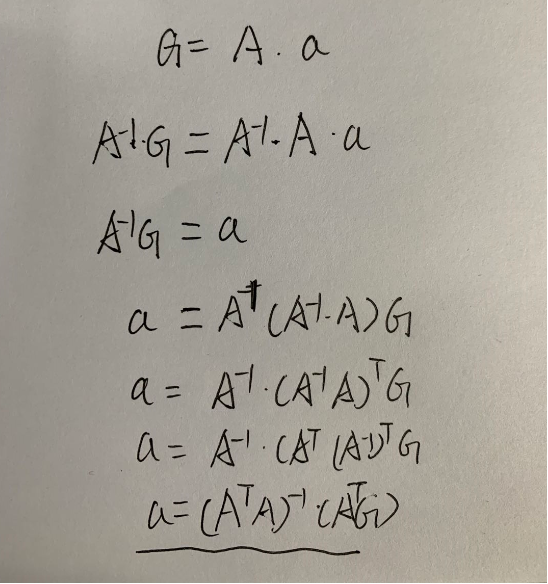 G = A · a
A⁻¹·G = A⁻¹·A·a
A⁻¹G = a
a = A⁻¹(A⁻¹·A)G
a = A⁻¹·(A⁻¹A)ᵀG
a = A⁻¹·(Aᵀ(A⁻¹)ᵀG
a=(AᵀA)⁻¹·(AᵀG)